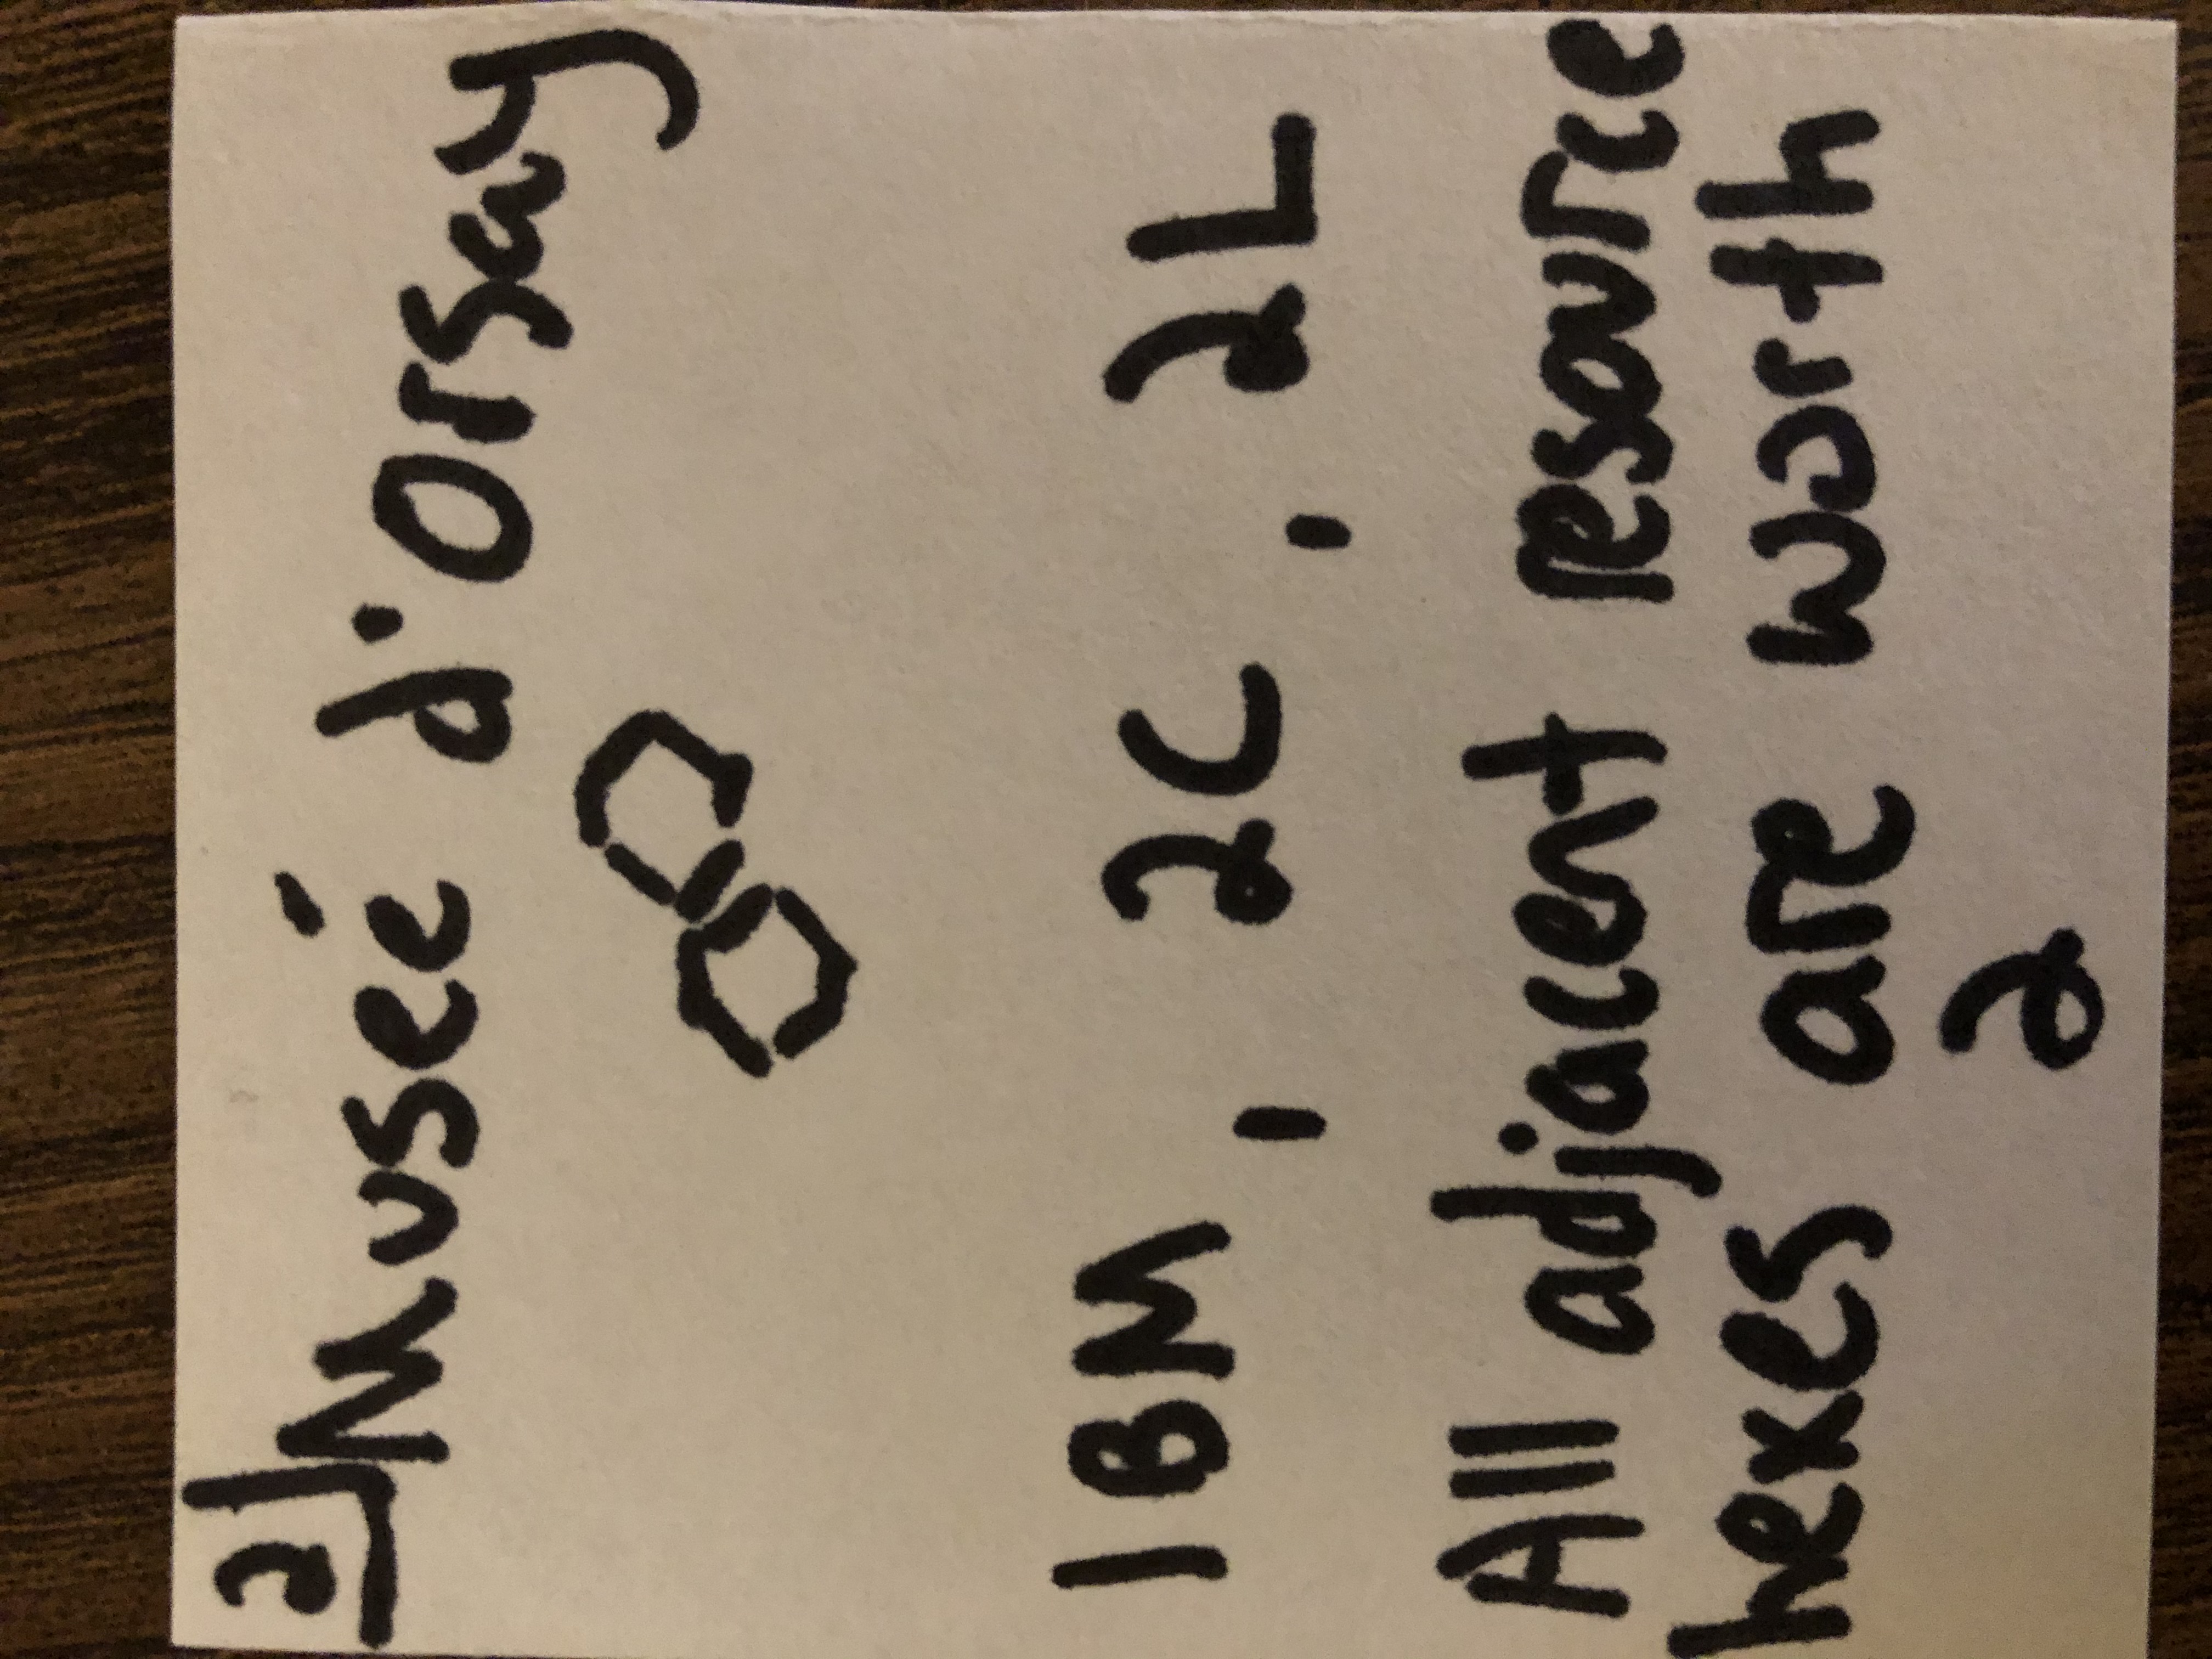 2 Museé d'Orsay
1BM, 2C, 2L
All adjacent resource
hexes are worth
2